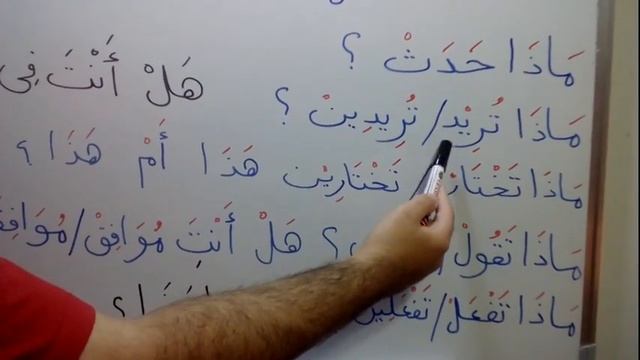 مَاذَا حَدَثْ ؟
هَلْ أَنْتَ فِي
مَاذَا تُرِيْد/تُرِيدِينْ ؟
مَاذَا تَخْتَار تَخْتَارِيْن هَذَا أَمْ هَذَا ؟
مَاذَا تَقُولْ ؟ هَلْ أَنْتَ مُوَافِقْ/مُوَافِقَ
مَاذَا تَفْعَلْ/تَفْعَلِيْن ؟